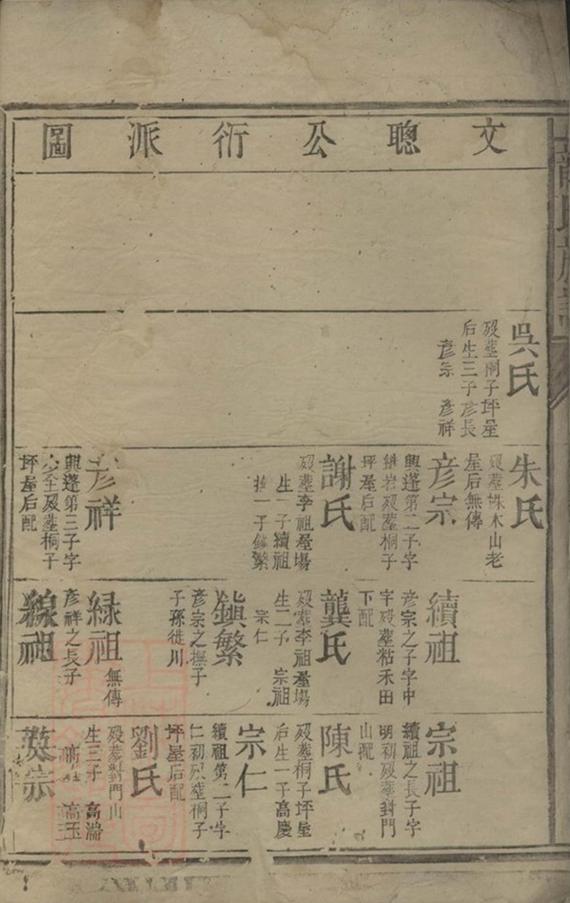 文聰公衍派圖
吳氏
歿塟桐子坪屋
后生三子彥長
彥宗 彥祥
朱氏
歿塟株木山老
屋后無傳
彥宗
興逢第二子字
歿塟桐子
坪屋后配
謝氏
歿塟李祖屋塲
生一子續祖
撫一子鎮繁
彥祥
興逢第三子字
歿塟桐子
坪屋后配
續祖
彥宗之子字中
宇歿塟粘禾田
下配
龔氏
歿塟李祖屋塲
生二子 宗祖
宗仁
鎮繁
彥宗之撫子
子孫徙川
緑祖
無傳
彥祥之長子
線祖
宗祖
續祖之長子字
明初歿塟封門
山配
陳氏
歿塟桐子坪屋
后生一子高慶
宗仁
續祖第二子字
仁初歿塟桐子
坪屋后配
劉氏
歿塟封門山
生三子 高瑞
高玉
英宗